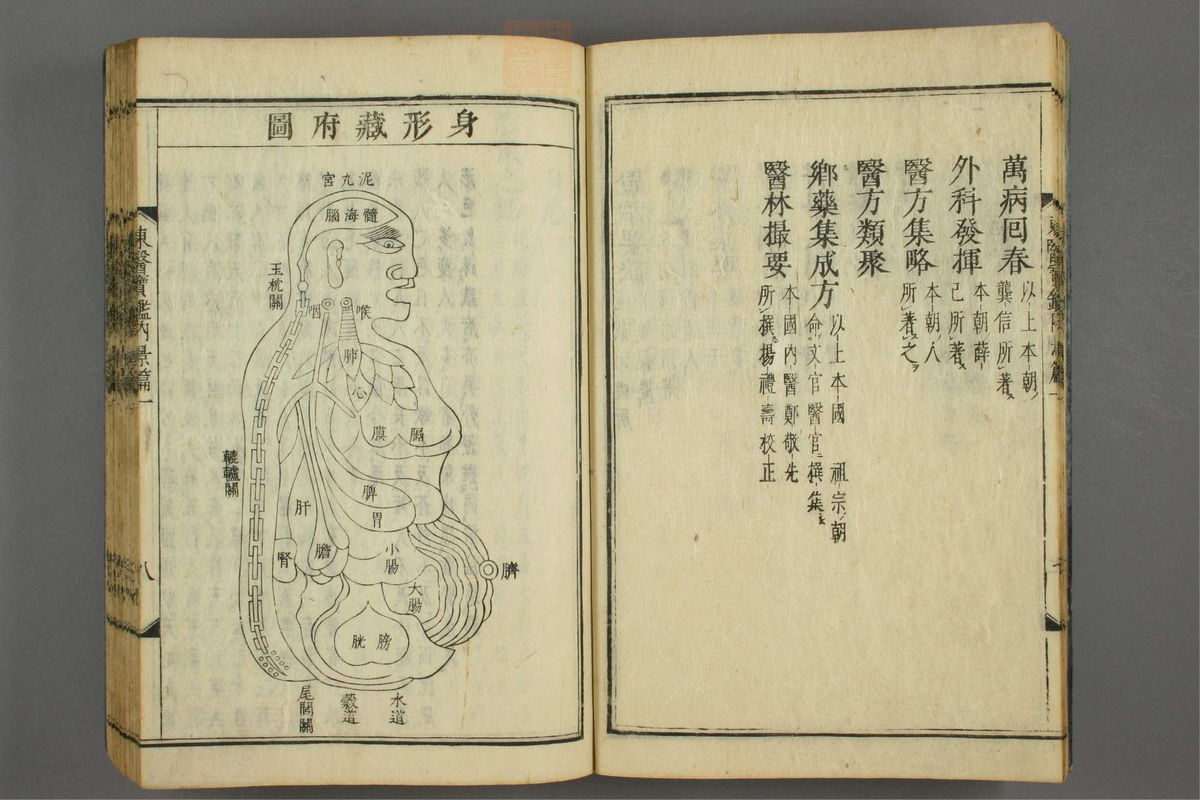 萬病回春
以上本朝
龔信所著
外科發揮
本朝薛
己所著
醫方集略
本朝人
所著之
醫方類聚
鄉藥集成方
以上本國 祖宗朝
命文官醫官撰集
醫林撮要
本國內醫鄭敬先
所撰楊禮壽校正
身形藏府圖
泥九宮
髓海腦
玉枕關
咽
喉
肺
心
膈膜
脾
胃
肝
膽
腎
小腸
大腸
臍
膀胱
轆轤關
尾閭關
穀道
水道
東醫寶鑑內景篇一
八